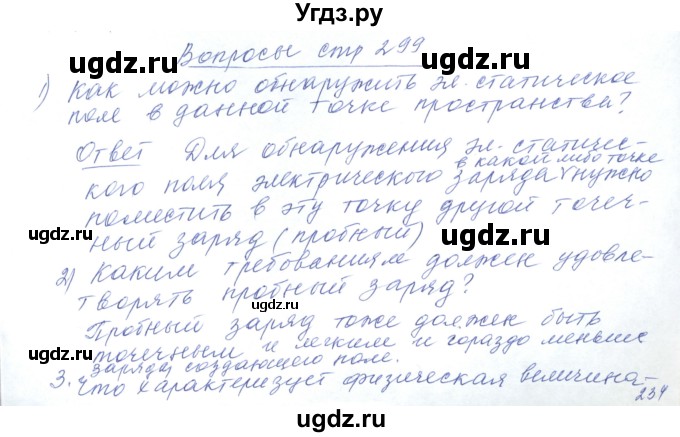 Угдз.ру
Вопросы стр 299
1) Как можно обнаружить эл. статическое
поле в данной точке пространства?
Ответ Для обнаружения эл. статичес-
в какой либо точке
кого поля электрического заряда нужно
поместить в эту точку другой точеч-
ный заряд (пробный)
2) Каким требованиям должен удовле-
творять пробный заряд?
Пробный заряд тоже должен быть
точечным и легким и гораздо меньше
заряда создающего поле.
3. Что характеризует физическая величина-
234
ugdz.ru
ugdz.ru
ugdz.ru
ugdz.ru
ugdz.ru
ugdz.ru
ugdz.ru
ugdz.ru
ugdz.ru